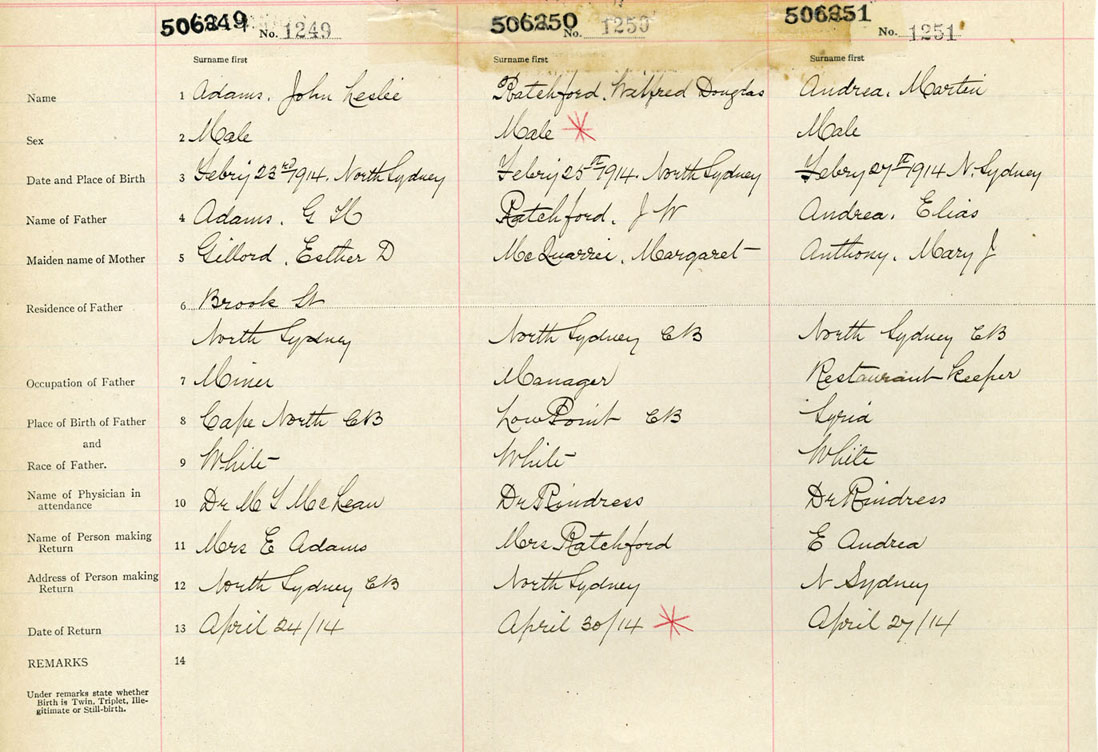 506349 No. 1249 506350 No. 1250 506351 No. 1251
Surname first Surname first Surname first
Name 1 Adams, John Leslie Ratchford, Walfred Douglas Andrea, Martin
Sex 2 Male Male Male
Date and Place of Birth 3 Febry 23rd 1914. North Sydney Febry 25th 1914. North Sydney Febry 27th 1914 N. Sydney
Name of Father 4 Adams, G H Ratchford, J W Andrea, Elias
Maiden name of Mother 5 Gillord, Esther D McQuarrie, Margaret Anthony, Mary J
Residence of Father 6 Brook St
North Sydney North Sydney CB North Sydney CB
Occupation of Father 7 Miner Manager Restaurant Keeper
Place of Birth of Father 8 Cape North CB Low Point CB Syria
and
Race of Father. 9 White White White
Name of Physician in
attendance 10 Dr M McLean Dr Rindress Dr Rindress
Name of Person making
Return 11 Mrs E Adams Mrs Ratchford E Andrea
Address of Person making
Return 12 North Sydney CB North Sydney N Sydney
Date of Return 13 April 24/14 April 30/14 April 27/14
REMARKS 14
Under remarks state whether
Birth is Twin, Triplet, Ille-
gitimate or Still-birth.